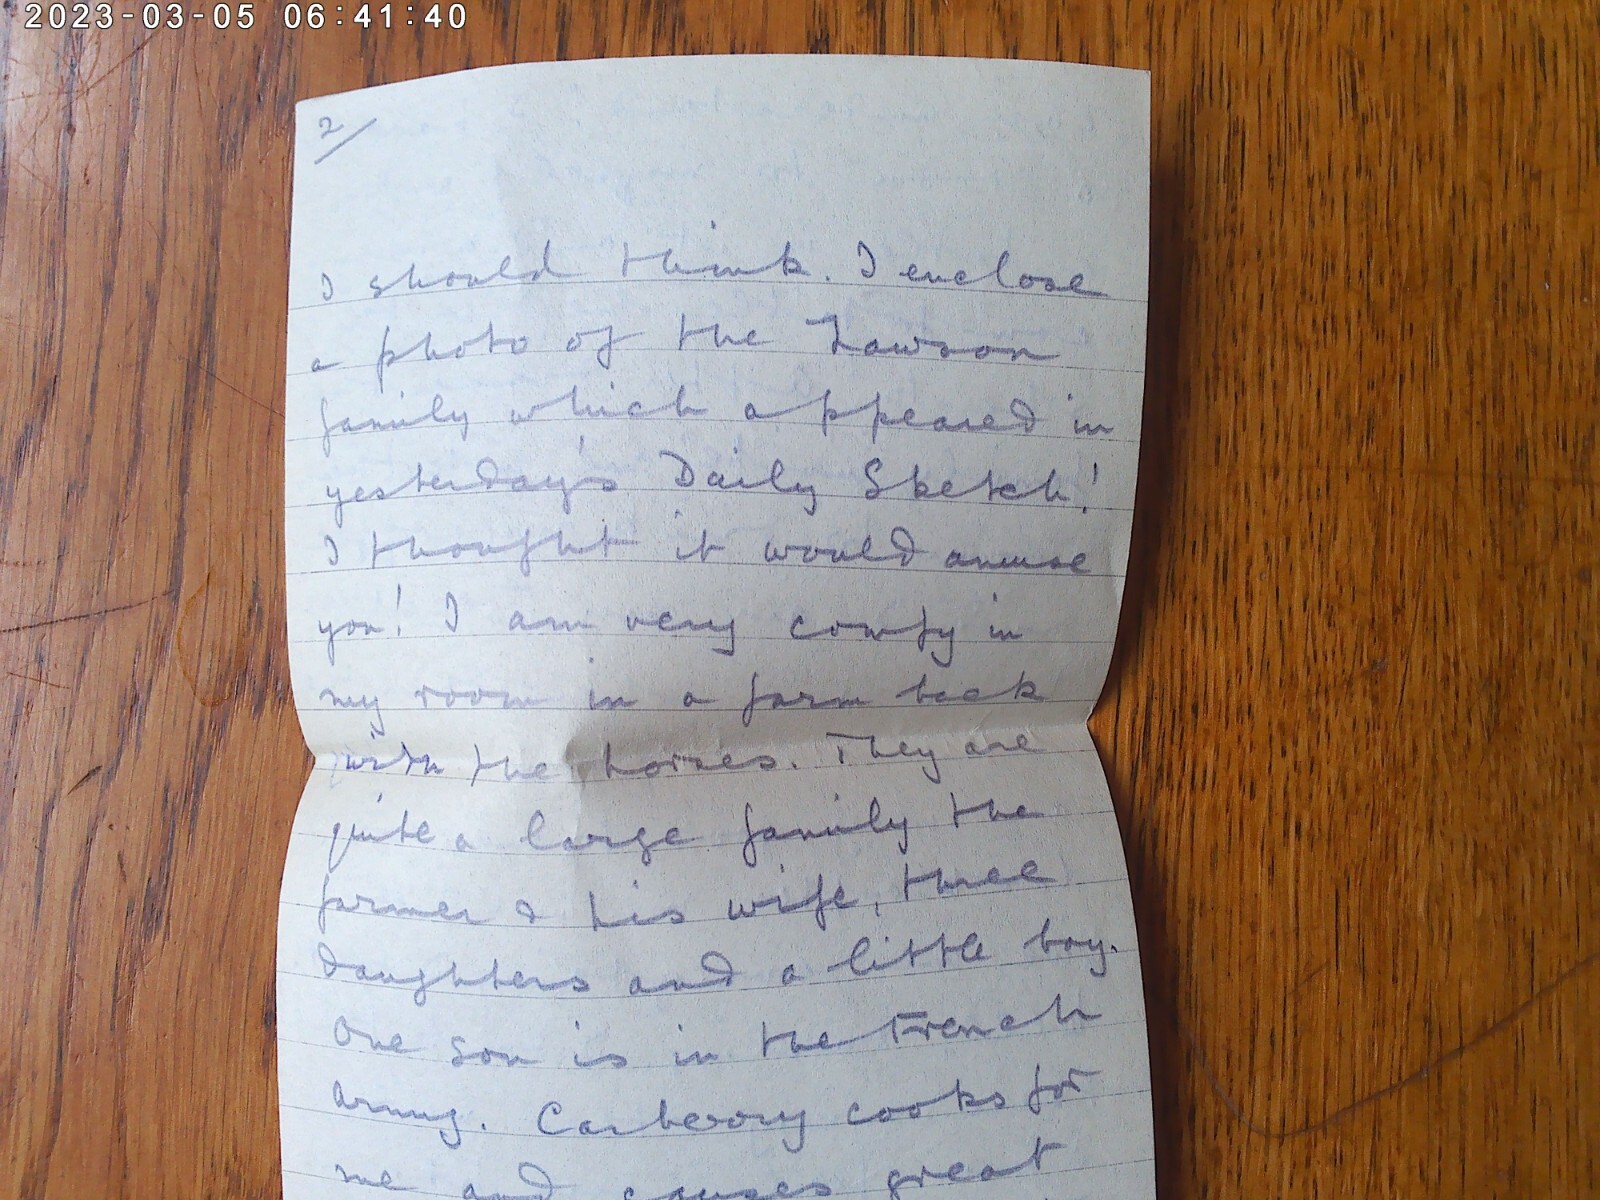 2023-03-05 06:41:40
2/
I should think. I enclose
a photo of the Lawson
family which appeared in
yesterday's Daily Sketch!
I thought it would amuse
you! I am very comfy in
my room in a farm back
with the horses. They are
quite a large family the
farmer & his wife, three
daughters and a little boy.
One son is in the French
Army. Carberry cooks for
me and causes great